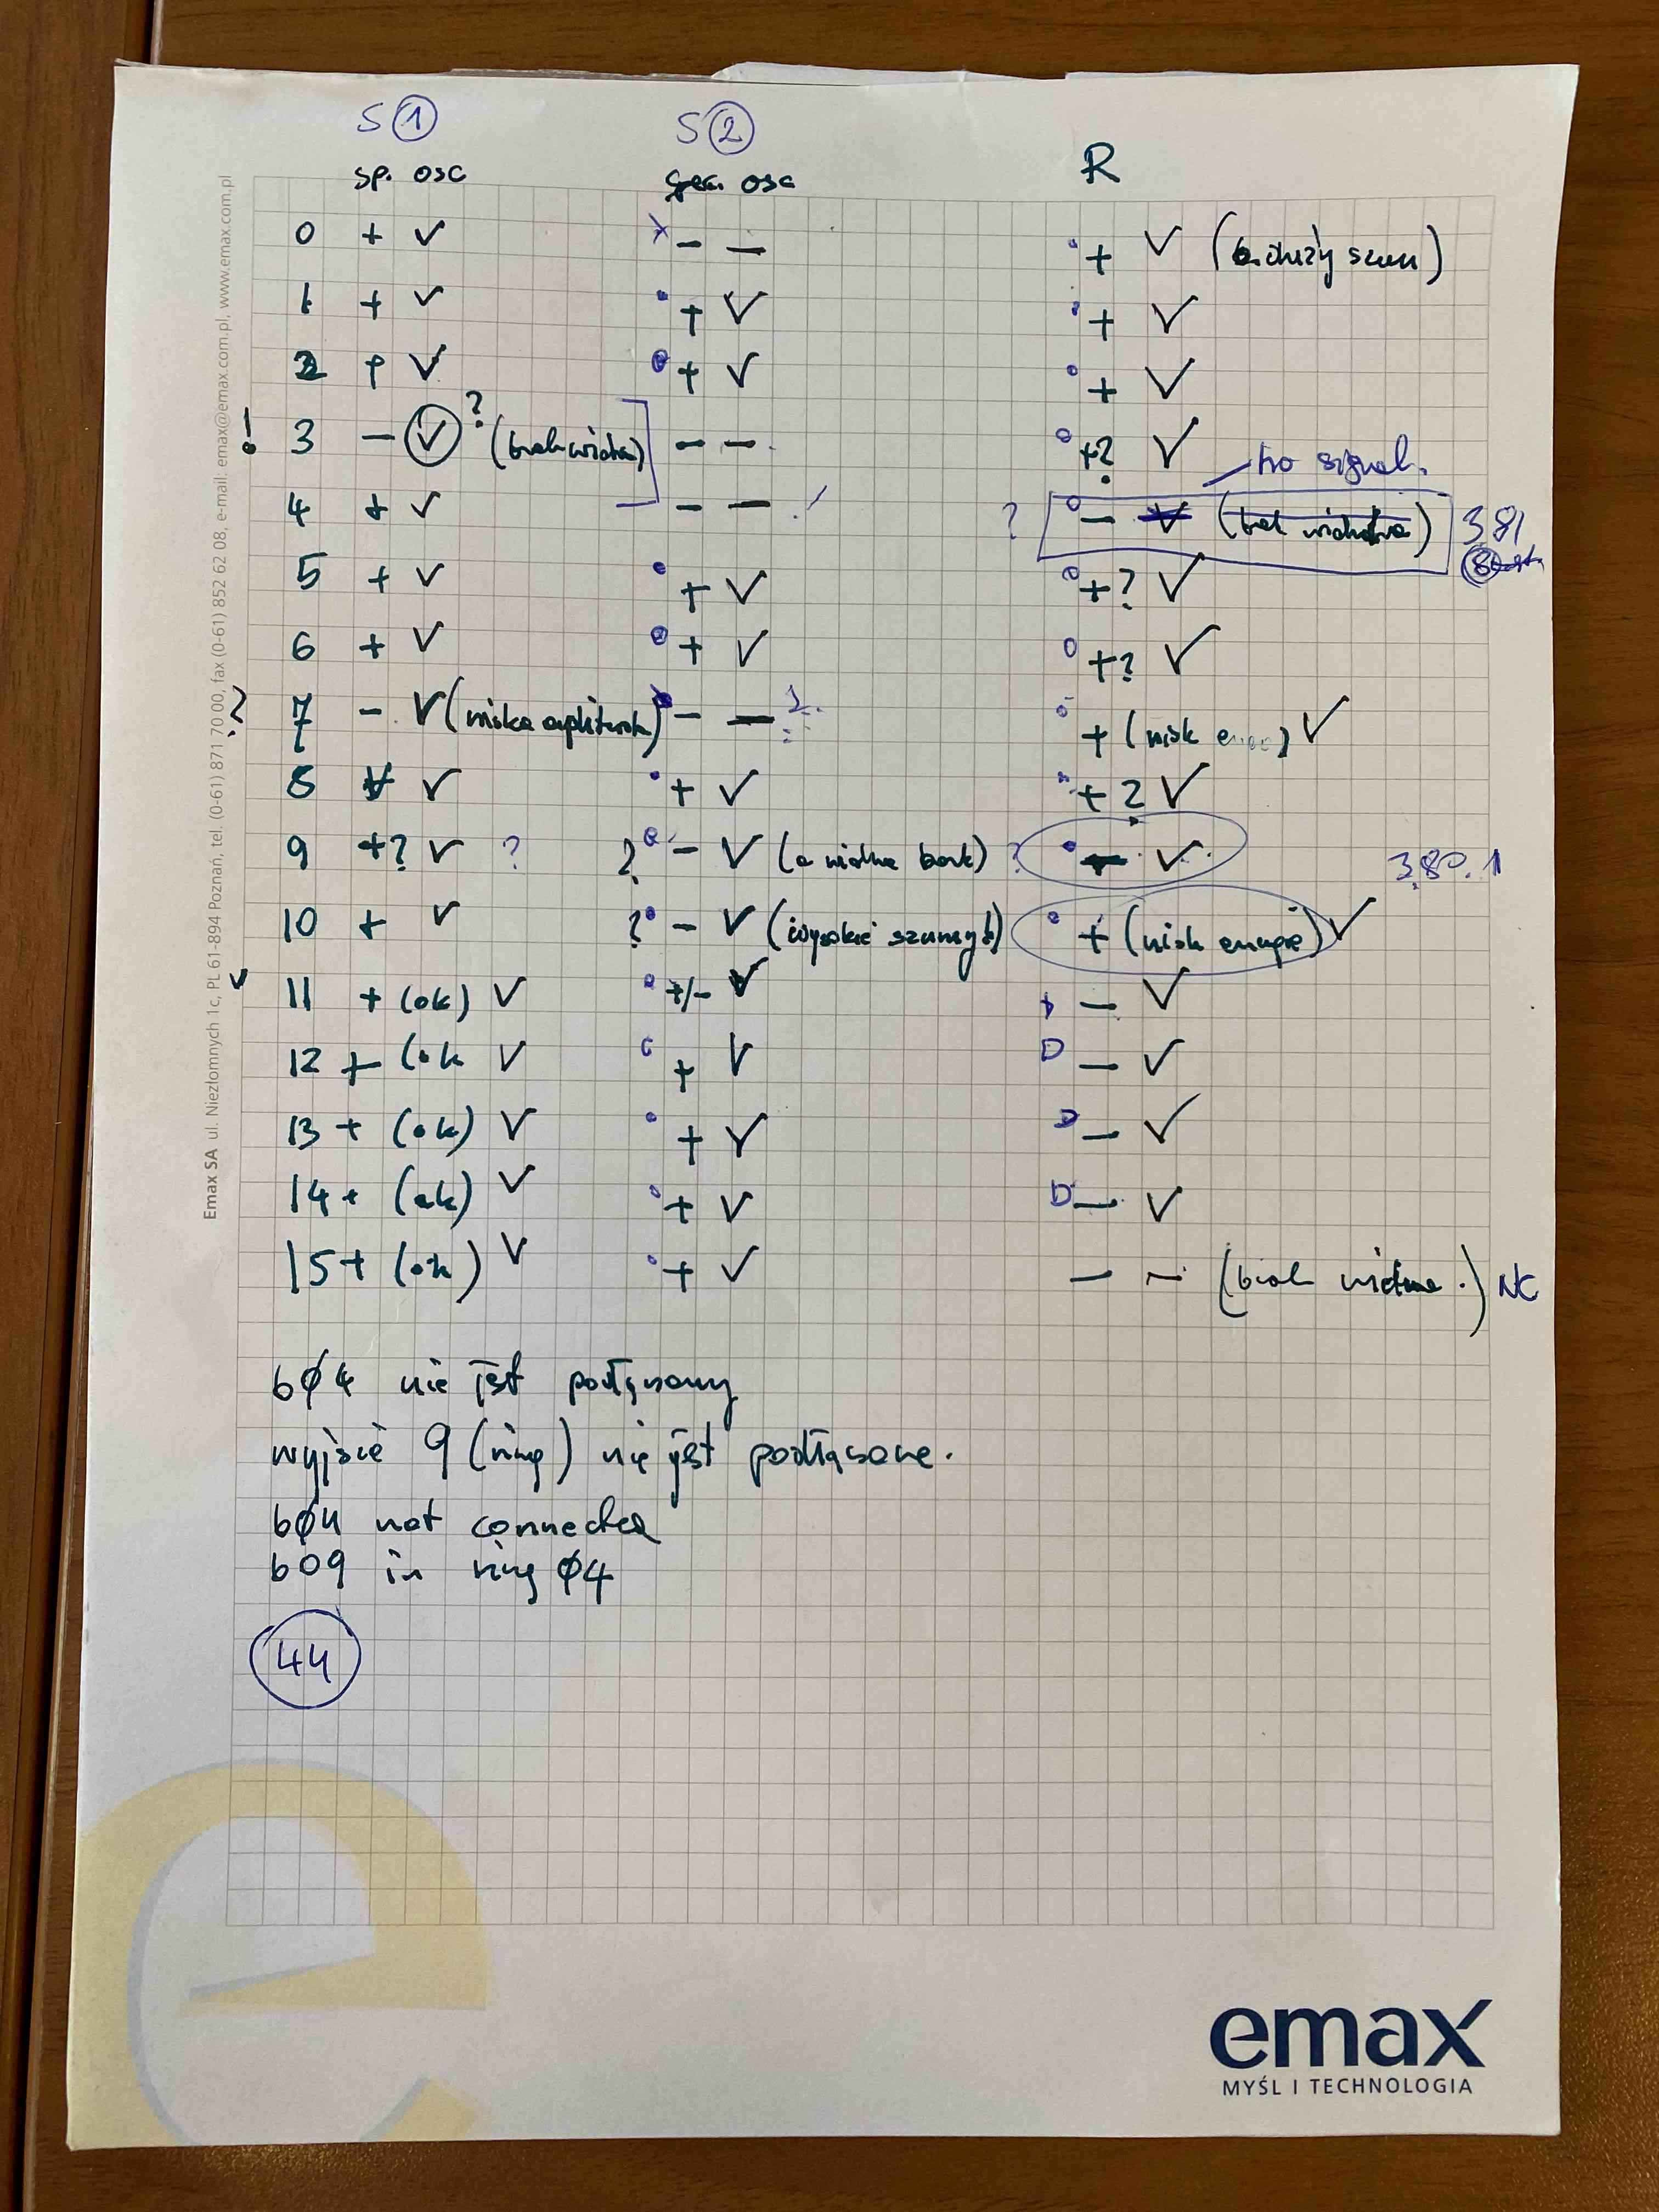 S ① S ② R
sp. osc spec. osc
0 + √ x – – ° + √ (b. duży szum)
1 + √ ° + √ ° + √
2 + √ ° + √ ° + √
! 3 – √ ? (brak widma) – – ° +? √
no signal.
4 + √ – – ? ° – √ (brak widma) 381
5 + √ ° + √ ° +? √
6 + √ ° + √ ° +? √
? 7 – √ (niska amplituda) – – ? ° + (nisk ) √
8 + √ ° + √ ° + ? √
9 +? √ ? ? ° – √ (a widmo brak) ? ° – √ 380.1
10 + √ ? ° – √ (wysokie szumy) ° + (nisk energie) √
√ 11 + (ok) √ ° +/– √ – √
12 + (ok √ ° + √ D – √
13 + (ok) √ ° + √ D – √
14 + (ok) √ ° + √ D – √
15 + (ok) √ ° + √ – – (brak widma.) NC
bø4 nie jest podłączony
wyjście 9 (ring) nie jest podłączone.
bø4 not connected
b09 in ring ø4
44
Emax SA ul. Niezłomnych 1c, PL 61-894 Poznań, tel. (0-61) 871 70 00, fax (0-61) 852 62 08, e-mail: emax@emax.com.pl, www.emax.com.pl
emax
MYŚL I TECHNOLOGIA